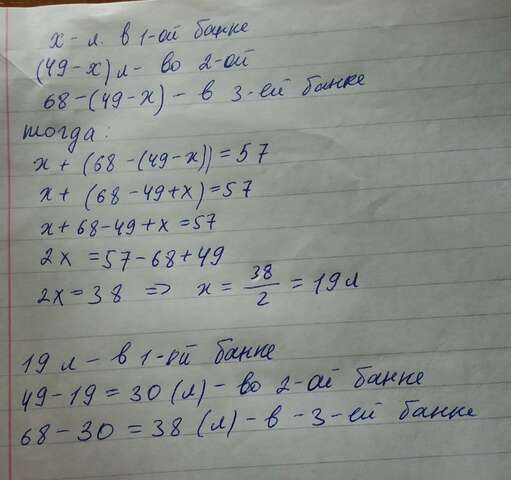 x - л. в 1-ой банке
(49-x) л - во 2-ой
68-(49-x) - в 3-ей банке
тогда:
x + (68-(49-x)) = 57
x + (68-49+x) = 57
x+68-49+x = 57
2x = 57-68+49
2x = 38 => x = 38/2 = 19 л
19 л - в 1-ой банке
49-19 = 30 (л) - во 2-ой банке
68-30 = 38 (л) - в - 3-ей банке